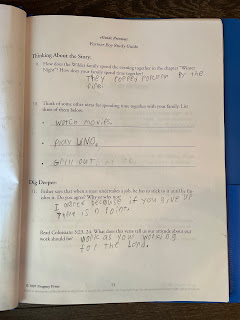 Farmer Boy Study Guide
Thinking About the Story:
9. How does the Wilder family spend the evening together in the chapter "Winter
Night"? How does your family spend time together?
They popped popcorn by the
fire.
10. Think of some other ideas for spending time together with your family. List
them below.
• Watch movies
• play UNO,
• Spill out
Dig Deeper:
11. Father says that when a man undertakes a job, he has to stick to it until he
does it. Do you agree? Why
I agree because if you give up
there is n point.
Read Colossians 3:23, 24. What does this verse tell us our attitude about our
work should be?
work as your working
for the Lord.